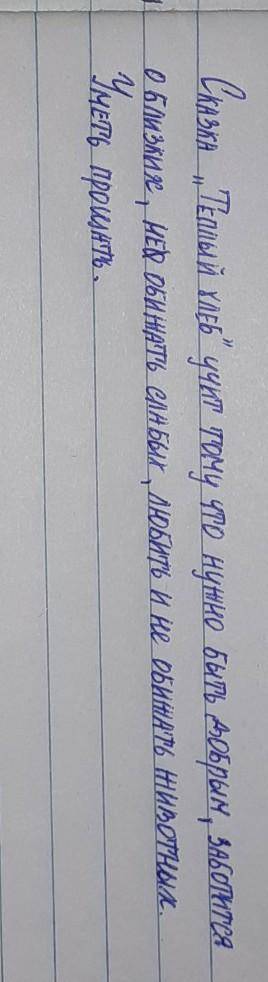 Сказка „Тёплый хлеб" учит тому что нужно быть добрым, заботится
о близких, не обижать слабых, любить и не обижать животных.
И
Уметь прощать.